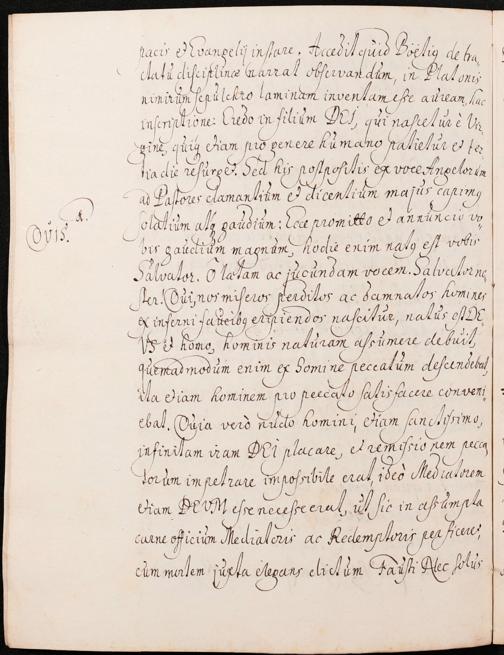 pacis et Evangelij instare. Accedit quid Boëtiq de tra,
ctatu disciplinæ narrat observandum, in Platonis
nimirum sepulchro laminam inventam esse auream, hac
inscriptione: Credo in filium DEI, qui nascetur è Vir
gine, quiq etiam pro genere humano patietur et ter,
tia die resurget. Sed his postpositis ex voce Angelorum
ad Pastores clamantium et dicentium majus capimq
solatium atq gaudium: Ecce promitto et annuncio vo
bis gaudium magnum, hodie enim natq est vobis
Salvator. O lætam ac jucundam vocem. Salvator no,
ster. Qui, nos miseros perditos ac damnatos homines
Quis.
ex inferni faucibq eripiendos nascitur, natus est DE,
VS et homo, hominis naturam assumere debuit,
quemadmodum enim ex homine peccatum descendebat,
ita etiam hominem pro peccato satisfacere conveni
ebat. Quia verò nudo homini, etiam sanctissimo,
infinitam iram DEI placare, et remissionem pecca
torum impetrare impossibile erat, ideò Mediatorem
etiam DEVM esse necesse erat, ut sic in assumpta
carne officium Mediatoris ac Redemptoris perficeret,
cum mortem juxta elegans dictum Fausti Nec solus